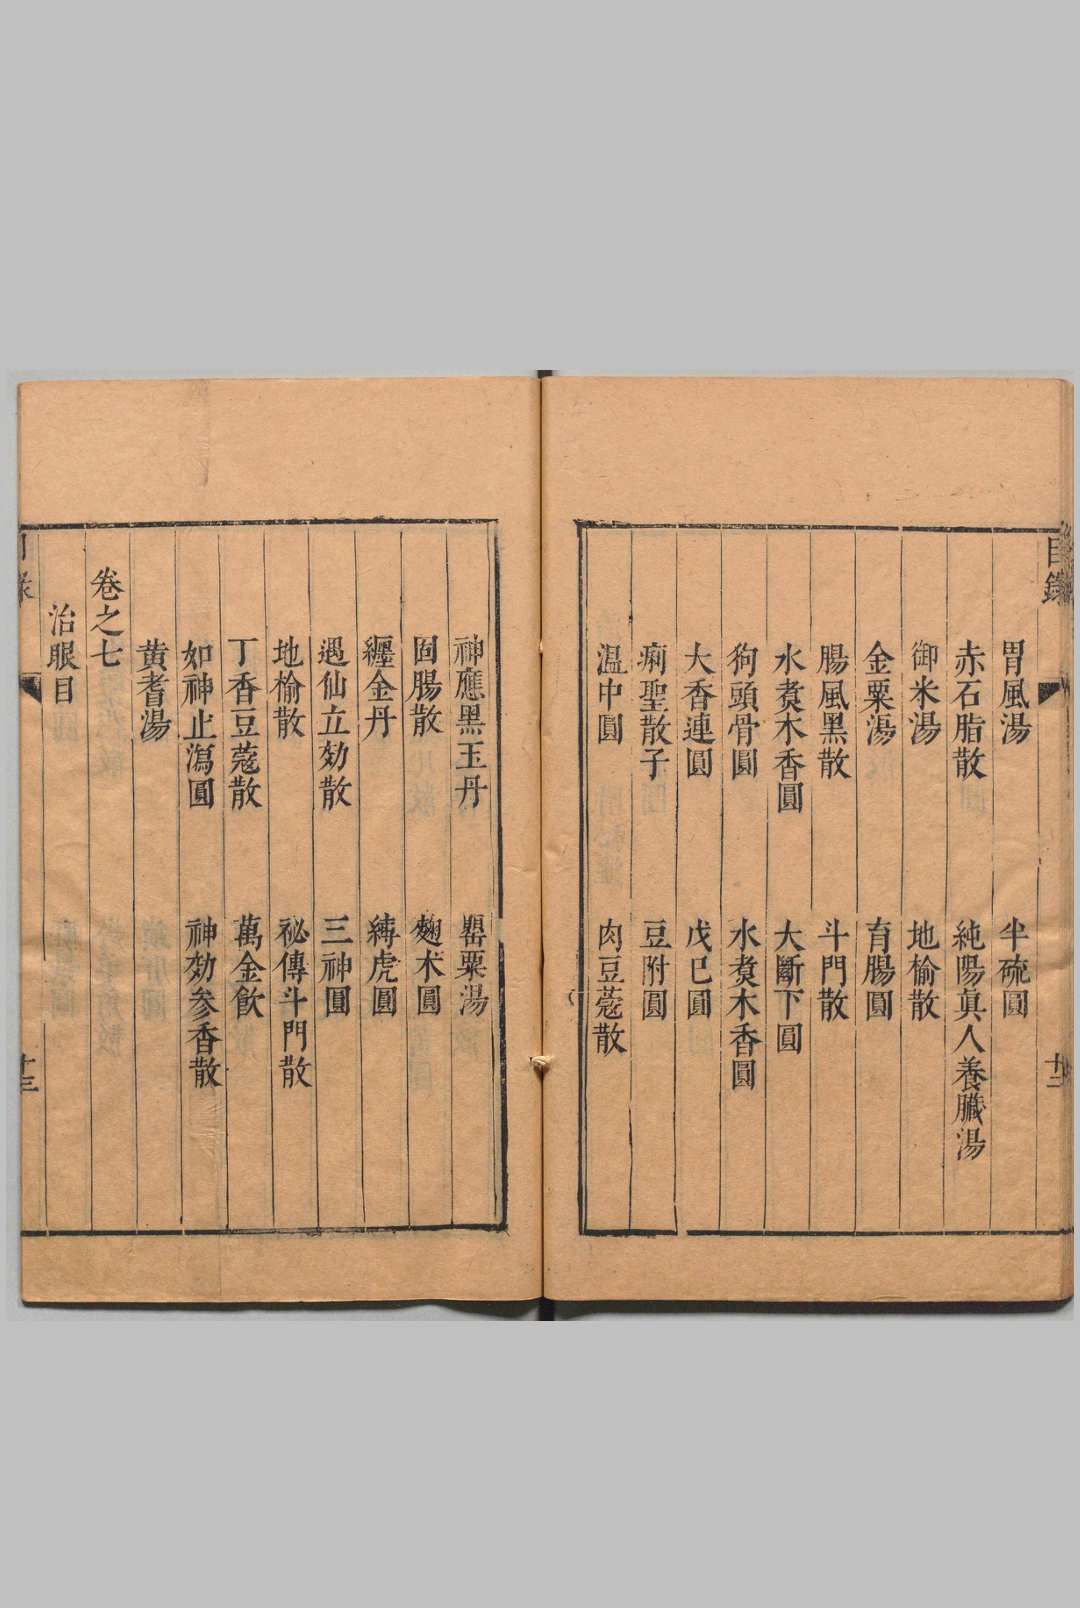 目錄
胃風湯 半硫圓
赤石脂散 純陽真人養臟湯
御米湯 地榆散
金粟湯 育腸圓
腸風黑散 斗門散
水煑木香圓 大斷下圓
狗頭骨圓 水煑木香圓
大香連圓 戊巳圓
痢聖散子 豆附圓
溫中圓 肉豆蔻散
十二
神應黑玉丹 罌粟湯
固腸散 麹朮圓
纏金丹 縛虎圓
遇仙立効散 三神圓
地榆散 祕傳斗門散
丁香豆蔻散 萬金飲
如神止瀉圓 神効參香散
黄耆湯
卷之七
治眼目
十三